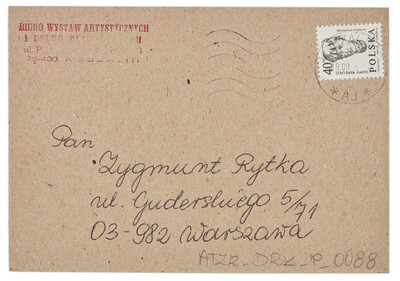 BIURO WYSTAW ARTYSTYCZNYCH
ul. P
POLSKA
40
*AJ*
Pan
Zygmunt Rytka
ul. Guderskiego 5/71
03-982 Warszawa
ATZR_DRK_P_0088